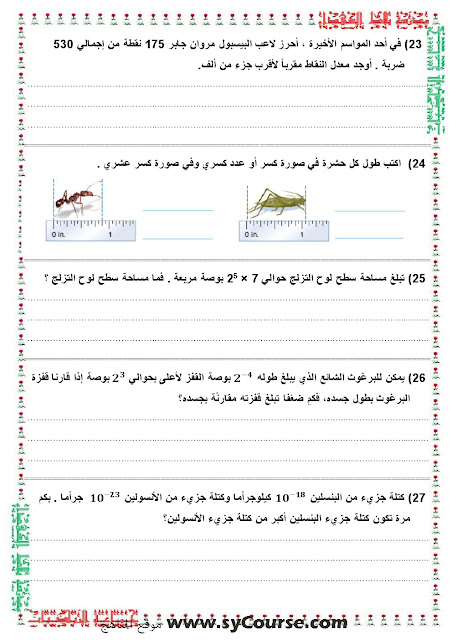 23) في أحد المواسم الأخيرة ، أحرز لاعب البيسبول مروان جابر 175 نقطة من إجمالي 530
ضربة . أوجد معدل النقاط مقرباً لأقرب جزء من ألف.
24) اكتب طول كل حشرة في صورة كسر أو عدد كسري وفي صورة كسر عشري .
0 in. 1
0 in. 1
25) تبلغ مساحة سطح لوح التزلج حوالي 7 × 2⁵ بوصة مربعة . فما مساحة سطح لوح التزلج ؟
26) يمكن للبرغوث الشائع الذي يبلغ طوله 2⁻⁴ بوصة القفز لأعلى بحوالي 2³ بوصة إذا قارنا قفزة
البرغوث بطول جسده، فكم ضعفا تبلغ قفزته مقارنة بجسده؟
27) كتلة جزيء من البنسلين 10⁻¹⁸ كيلوجراما وكتلة جزيء من الأنسولين 10⁻²³ جراما . بكم
مرة تكون كتلة جزيء البنسلين أكبر من كتلة جزيء الأنسولين؟
موقع المناهج www.syCourse.com